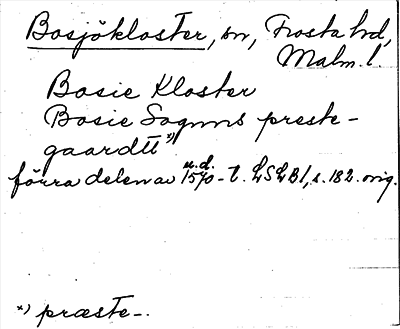 Bosjökloster, sn, Frosta hd,
Malm. l.
Bosie Kloster
Bosie Sognns preste-
gaardtt *)
u.d.
förra delen av 1570-t. LSLB1, s. 182. orig.
*) præste-.